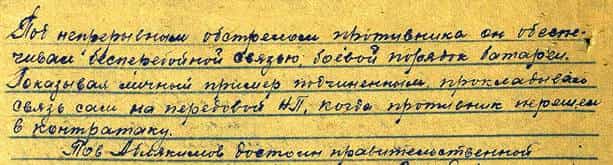 Под непрерывным обстрелом противника он обеспе-
чивал бесперебойной связью, боевой порядок батареи.
Показывая личный пример подчиненным, прокладывал
связь сам на передовой НП, когда противник перешел
в контратаку.
Тов Аблякимов достоин правительственной